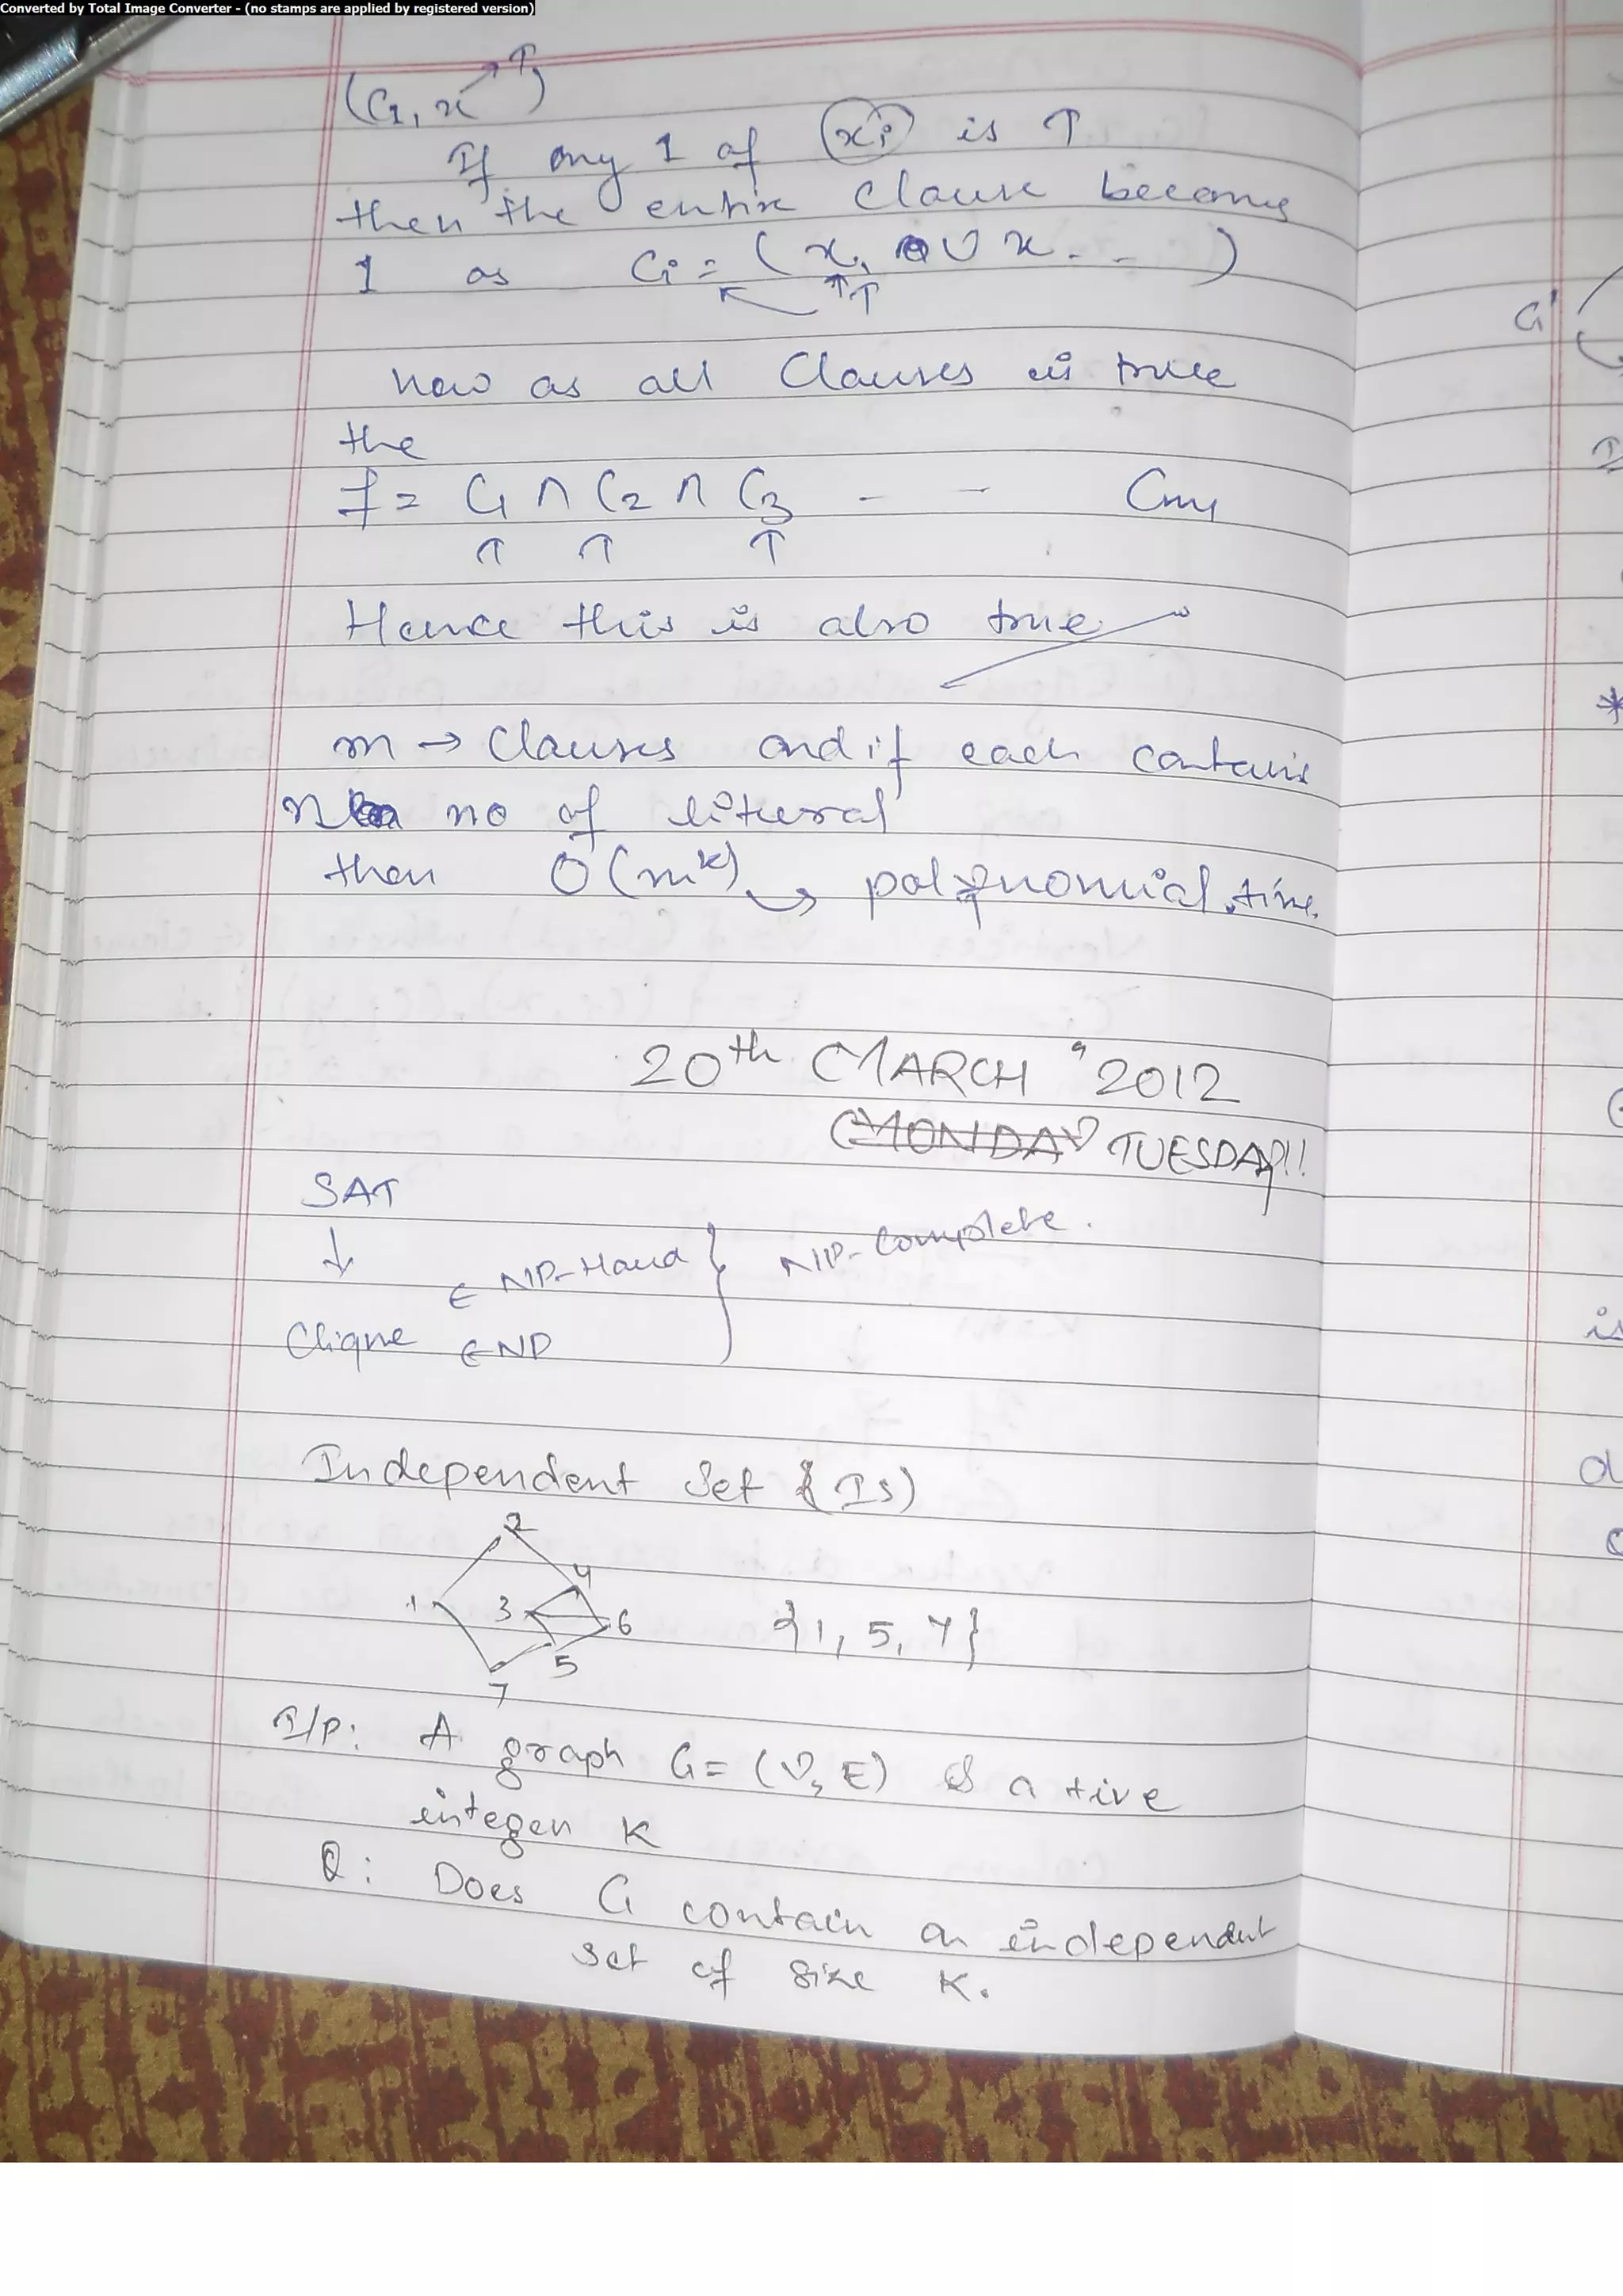 Converted by Total Image Converter - (no stamps are applied by registered version)
(C1, x → T)
If any 1 of (xi) is T
then the entire clause becomes
1 as Ci = (x, ∪ x - - )
T
Now as all Clauses is true
the
f = C1 ∩ C2 ∩ C3 - - Cm
T T T
Hence this is also true
m → Clauses and if each contains
n no of literal
then O(m^k) → polynomial time.
20th MARCH "2012
MONDAY TUESDAY!!
SAT
↓
∈ NP-Hard } NP-Complete.
Clique ∈ NP
Independent Set (IS)
2
4
1 3 6 {1, 5, 4}
5
7
I/P: A graph G = (V, E) & a +ive
integer K
Q: Does G contain an independent
set of size K.
G'
*
is